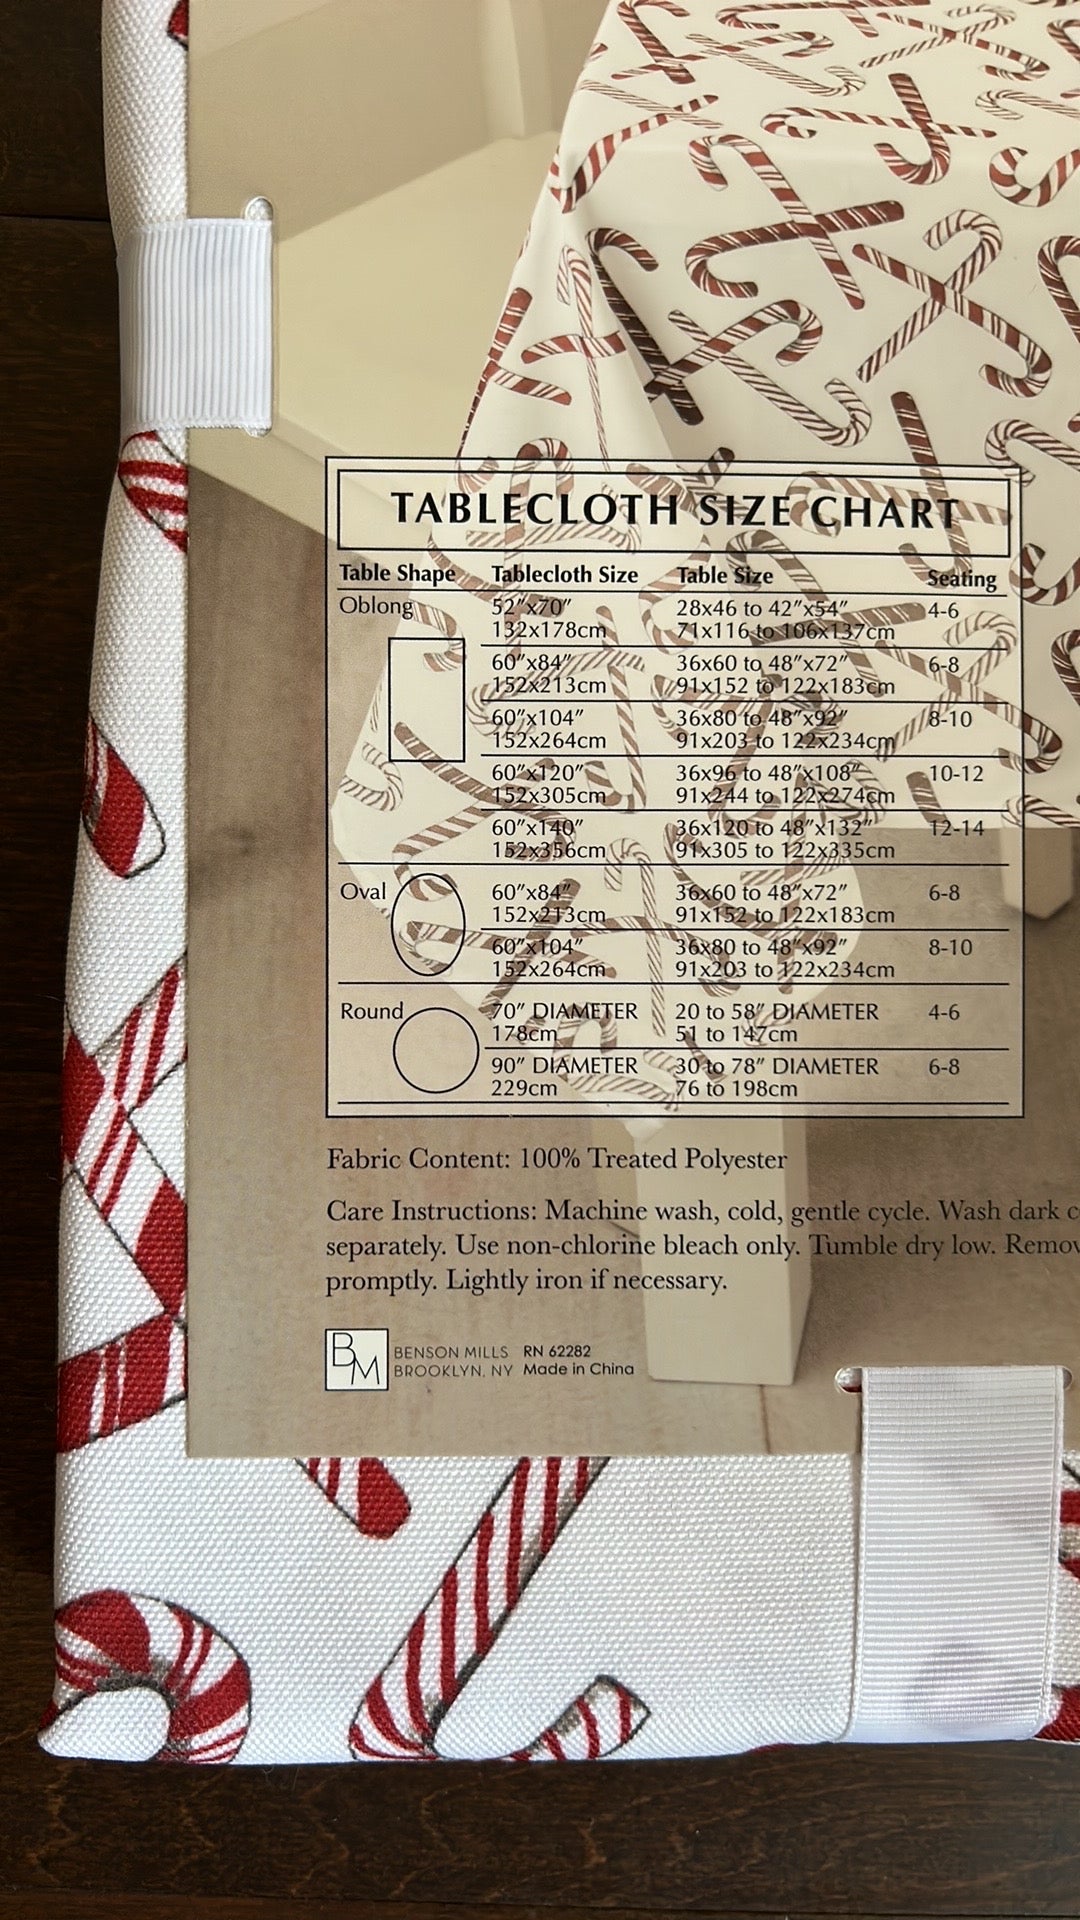 TABLECLOTH SIZE CHART
Table Shape Tablecloth Size Table Size Seating
Oblong 52"x70" 28x46 to 42"x54" 4-6
132x178cm 71x116 to 106x137cm
60"x84" 36x60 to 48"x72" 6-8
152x213cm 91x152 to 122x183cm
60"x104" 36x80 to 48"x92" 8-10
152x264cm 91x203 to 122x234cm
60"x120" 36x96 to 48"x108" 10-12
152x305cm 91x244 to 122x274cm
60"x140" 36x120 to 48"x132" 12-14
152x356cm 91x305 to 122x335cm
Oval 60"x84" 36x60 to 48"x72" 6-8
152x213cm 91x152 to 122x183cm
60"x104" 36x80 to 48"x92" 8-10
152x264cm 91x203 to 122x234cm
Round 70" DIAMETER 20 to 58" DIAMETER 4-6
178cm 51 to 147cm
90" DIAMETER 30 to 78" DIAMETER 6-8
229cm 76 to 198cm
Fabric Content: 100% Treated Polyester
Care Instructions: Machine wash, cold, gentle cycle. Wash dark
separately. Use non-chlorine bleach only. Tumble dry low.
promptly. Lightly iron if necessary.
BM BENSON MILLS RN 62282
BROOKLYN, NY Made in China